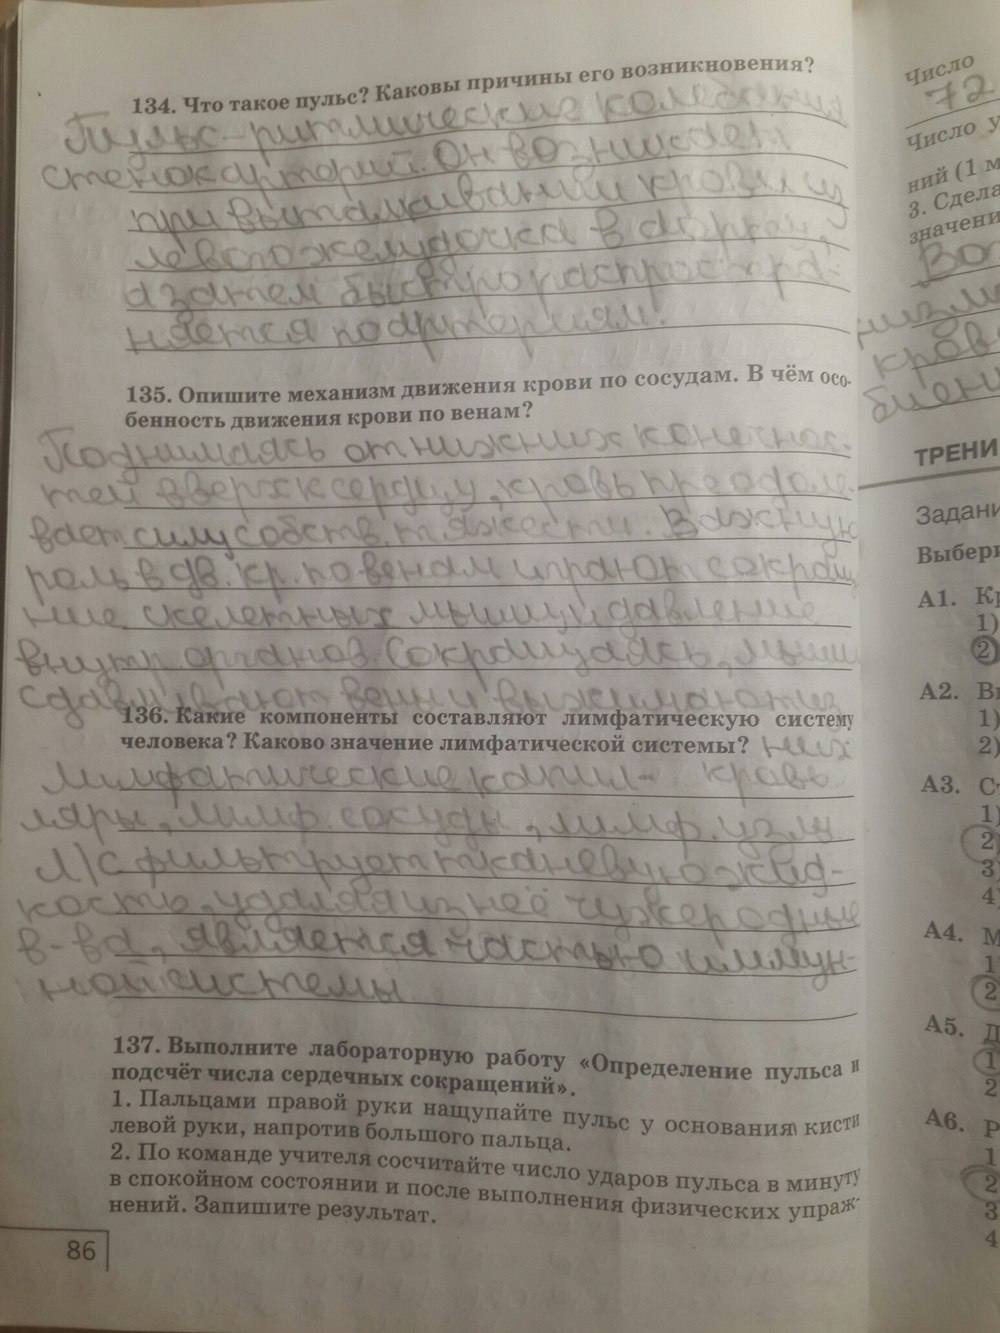 134. Что такое пульс? Каковы причины его возникновения?
Пульс-ритмические колебания
стенок арторий. Он возникает
при выталкивании крови из
левого желудочка в аорту,
а затем быстро распростра-
няется по артериям.
135. Опишите механизм движения крови по сосудам. В чём осо-
бенность движения крови по венам?
Поднимаясь от нижних конечнос-
тей вверх к сердцу, кровь преодоле-
вает силу собств. тяжести. Важную
роль в дв. кр. по венам играют сокращ
ние скелетных мышц и давление
внутр. органов. Сокращаясь, мыши
сдавливают вены и выжимают из
136. Какие компоненты составляют лимфатическую систему
человека? Каково значение лимфатической системы? них
Лимфатические капил- кровь
ляры, лимф. сосуды, лимф. узлы
Л/С фильтрует тканевую жид-
кость, удаляя из неё чужеродные
в-ва, является частью иммун-
ной системы
137. Выполните лабораторную работу «Определение пульса и
подсчёт числа сердечных сокращений».
1. Пальцами правой руки нащупайте пульс у основания кисти
левой руки, напротив большого пальца.
2. По команде учителя сосчитайте число ударов пульса в минуту
в спокойном состоянии и после выполнения физических упраж-
нений. Запишите результат.
86
Число
72
Число у
ний (1 м
3. Сдела
значени
кров
биен
ТРЕНИ
Задани
Выбери
А1. Кр
1)
2)
А2. Вы
1)
2)
А3. Ст
1)
2)
3)
4)
А4. М
1
2
А5. Д
1
2
А6. Р
1
2
3
4